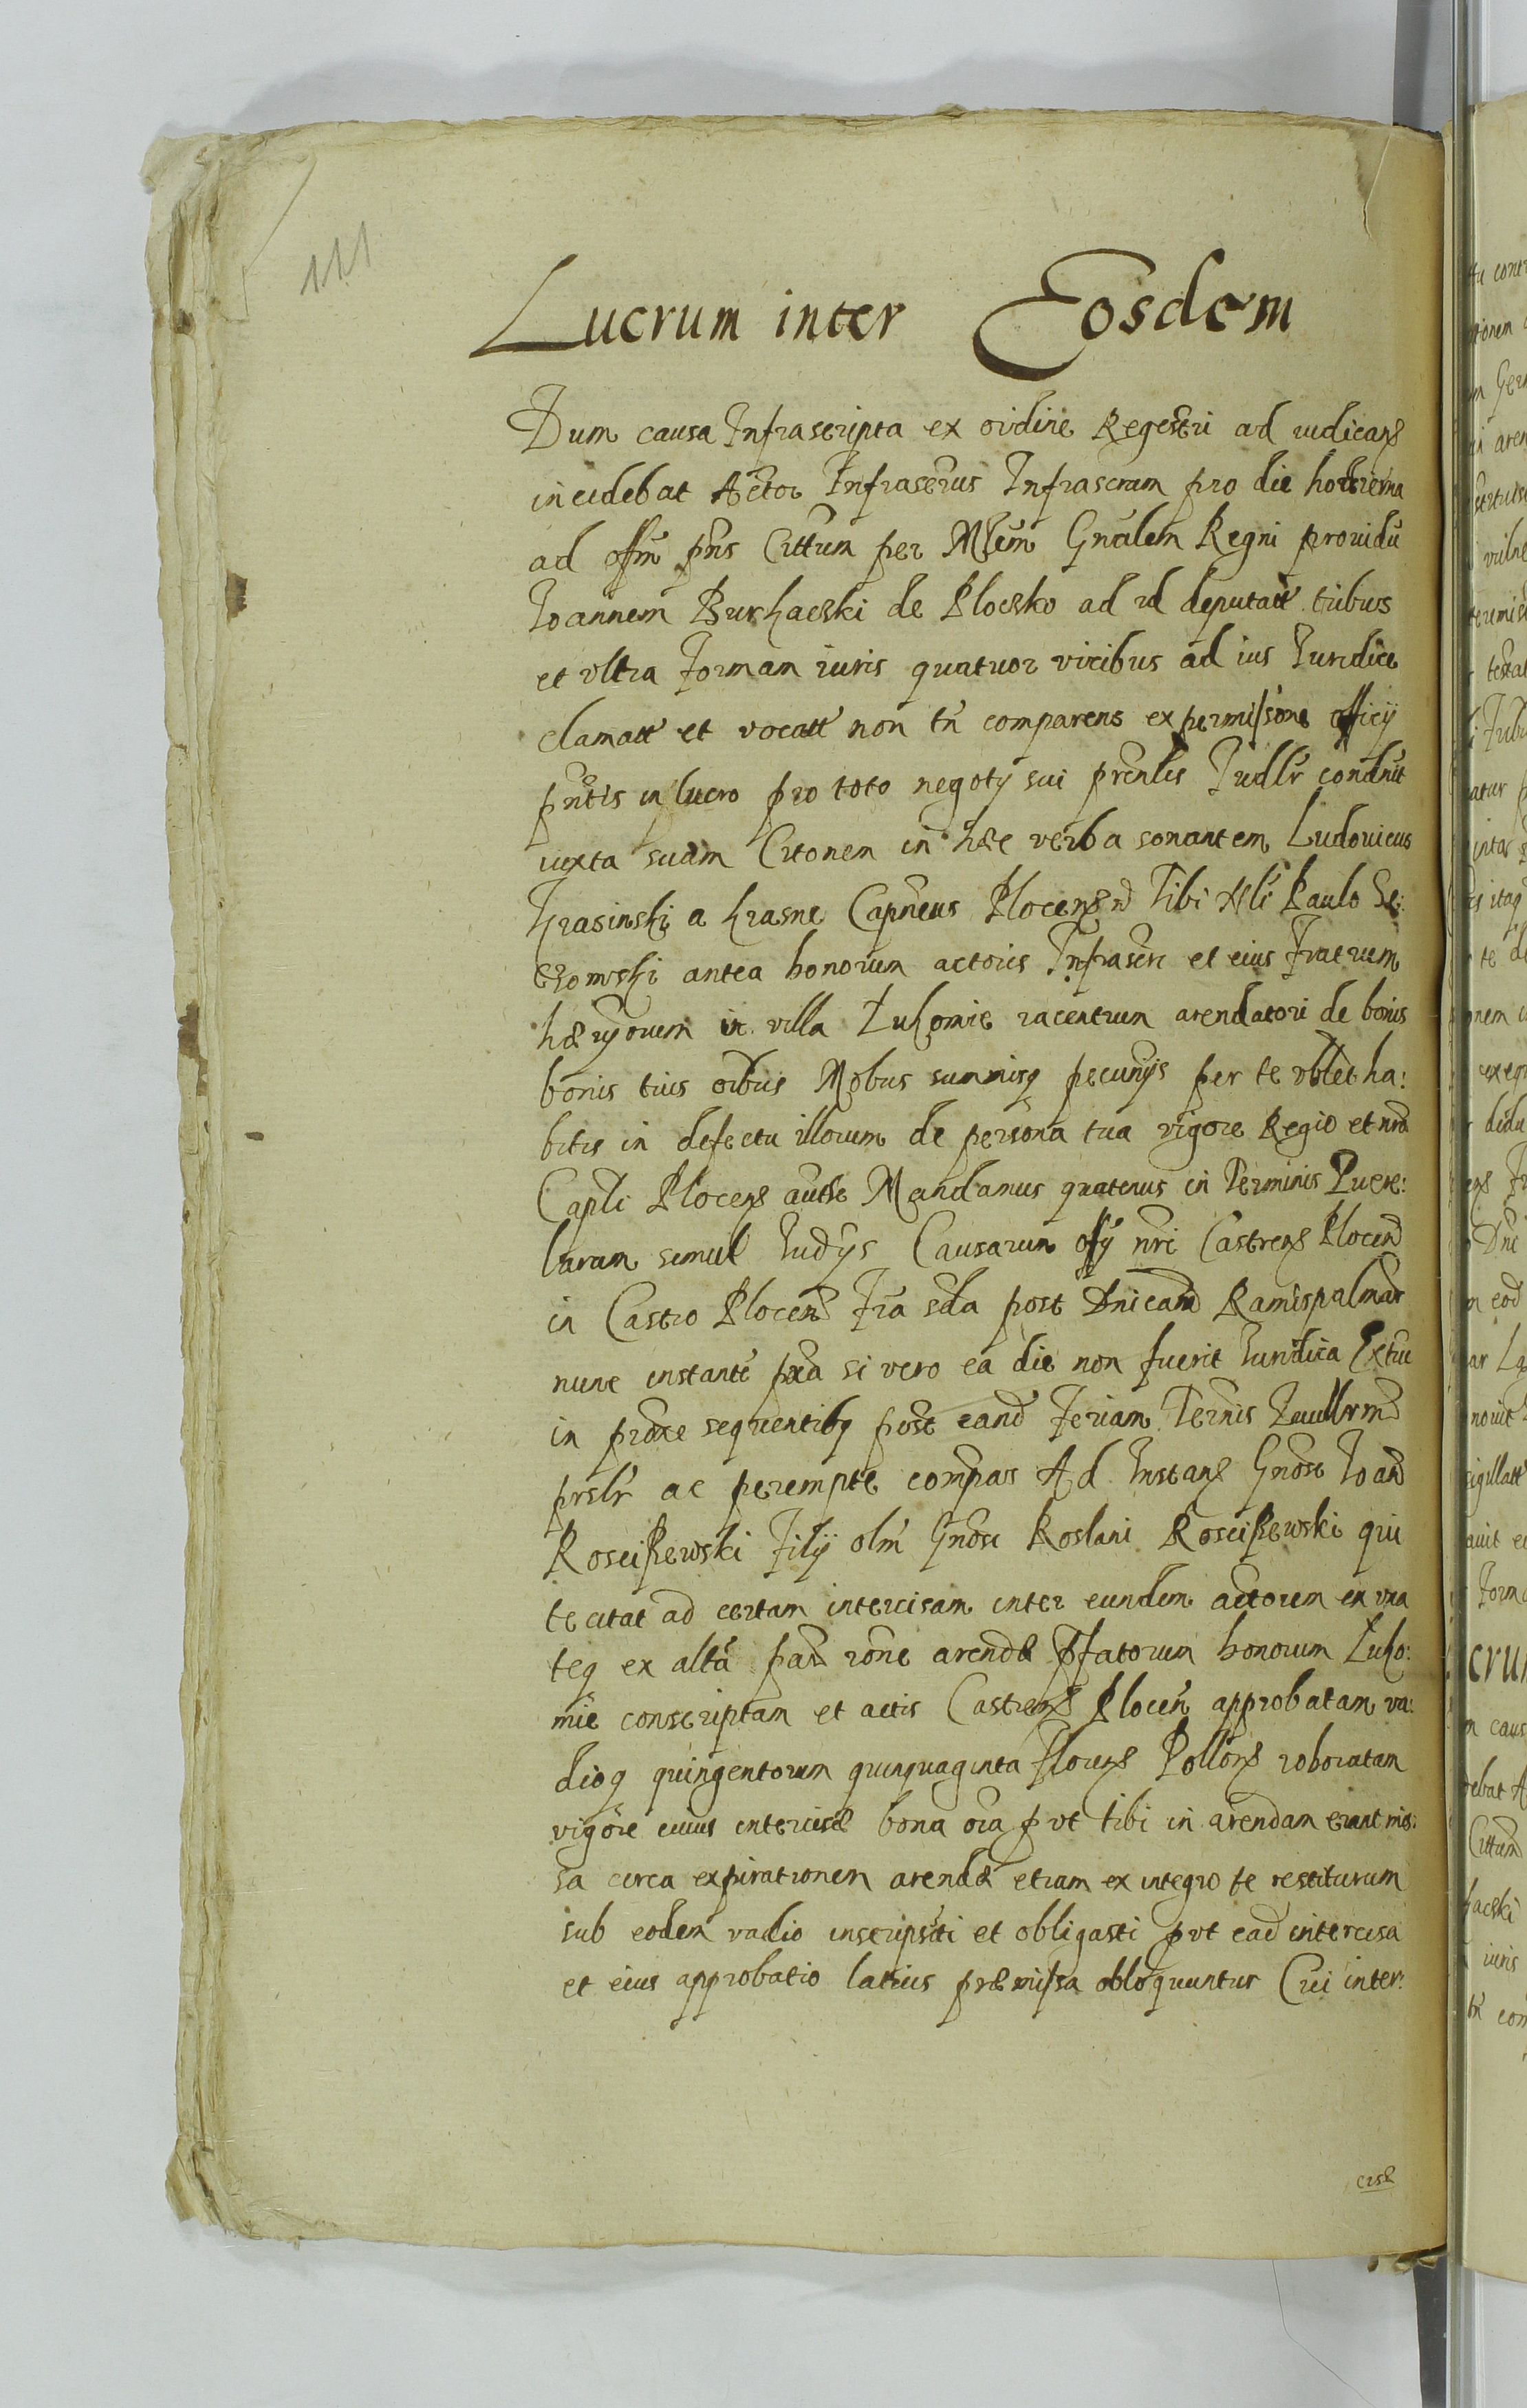 111
Lucrum inter Eosdem
Dum causa Infrascripta ex ordine Regestri ad iudicanδ
incidebat Actor Infrascrus Infrascram pro die hodierna
ad offm pñs Cittum per Mlem Gnalem Regni prouidũ
Ioannem Burhacski de Plocsko ad id deputatt tribus
et vltra formam iuris quatuor vicibus ad ius Iuridice
clamatt et vocatt non tñ comparens ex permissione officij
pñtis in lucro pro toto negotij sui prentis Iudlr condnit
iuxta suam Citonem in hæc verba sonantem Ludouicus
Krasinski a Krasne Capneus Plocens Tibi Nli Paulo
antea bonorum actoris Infrascr et eius fratrum
in villa Lukomie iacentium arendatori de bonis
bonis tuis oibus Mobus summisq pecunijs per te vblet ha:
bitis in defectu illorum de persona tua vigore Regio et nro
Capli Plocens autħe Mandamus quatenus in Terminis Quere:
larum simul Iudijs Causarum offij nri Castrens Plocen
in Castro Plocen Fra sda post Dnicam Ramispalmar
nunc instante pxa si vero ea die non fuerit Iuridica Extuc
in proxe sequentibq post eand Feriam Termis
prslr ac perempte compas Ad Instans Gnosi Ioan
Rosciszewski Filij olm Gnosi Roslani Rosciszewski qui
te citat ad certam intercisam inter eundem actorem ex vna
teq ex altã par rone arendæ pfatorum bonorum Luko:
mie conscriptam et actis Castrens Plocen approbatam va:
dioq quingentorum quinquaginta Florens Pollons roboratam
vigore cuius intercisæ bona oia put tibi in arendam erant mis:
sa circa expirationem arendæ etiam ex integro te restiturum
sub eodem vadio inscripsisti et obligasti put ead intercisa
et eius approbatio latius præmissa obloquuntur Cui inter:
cisæ